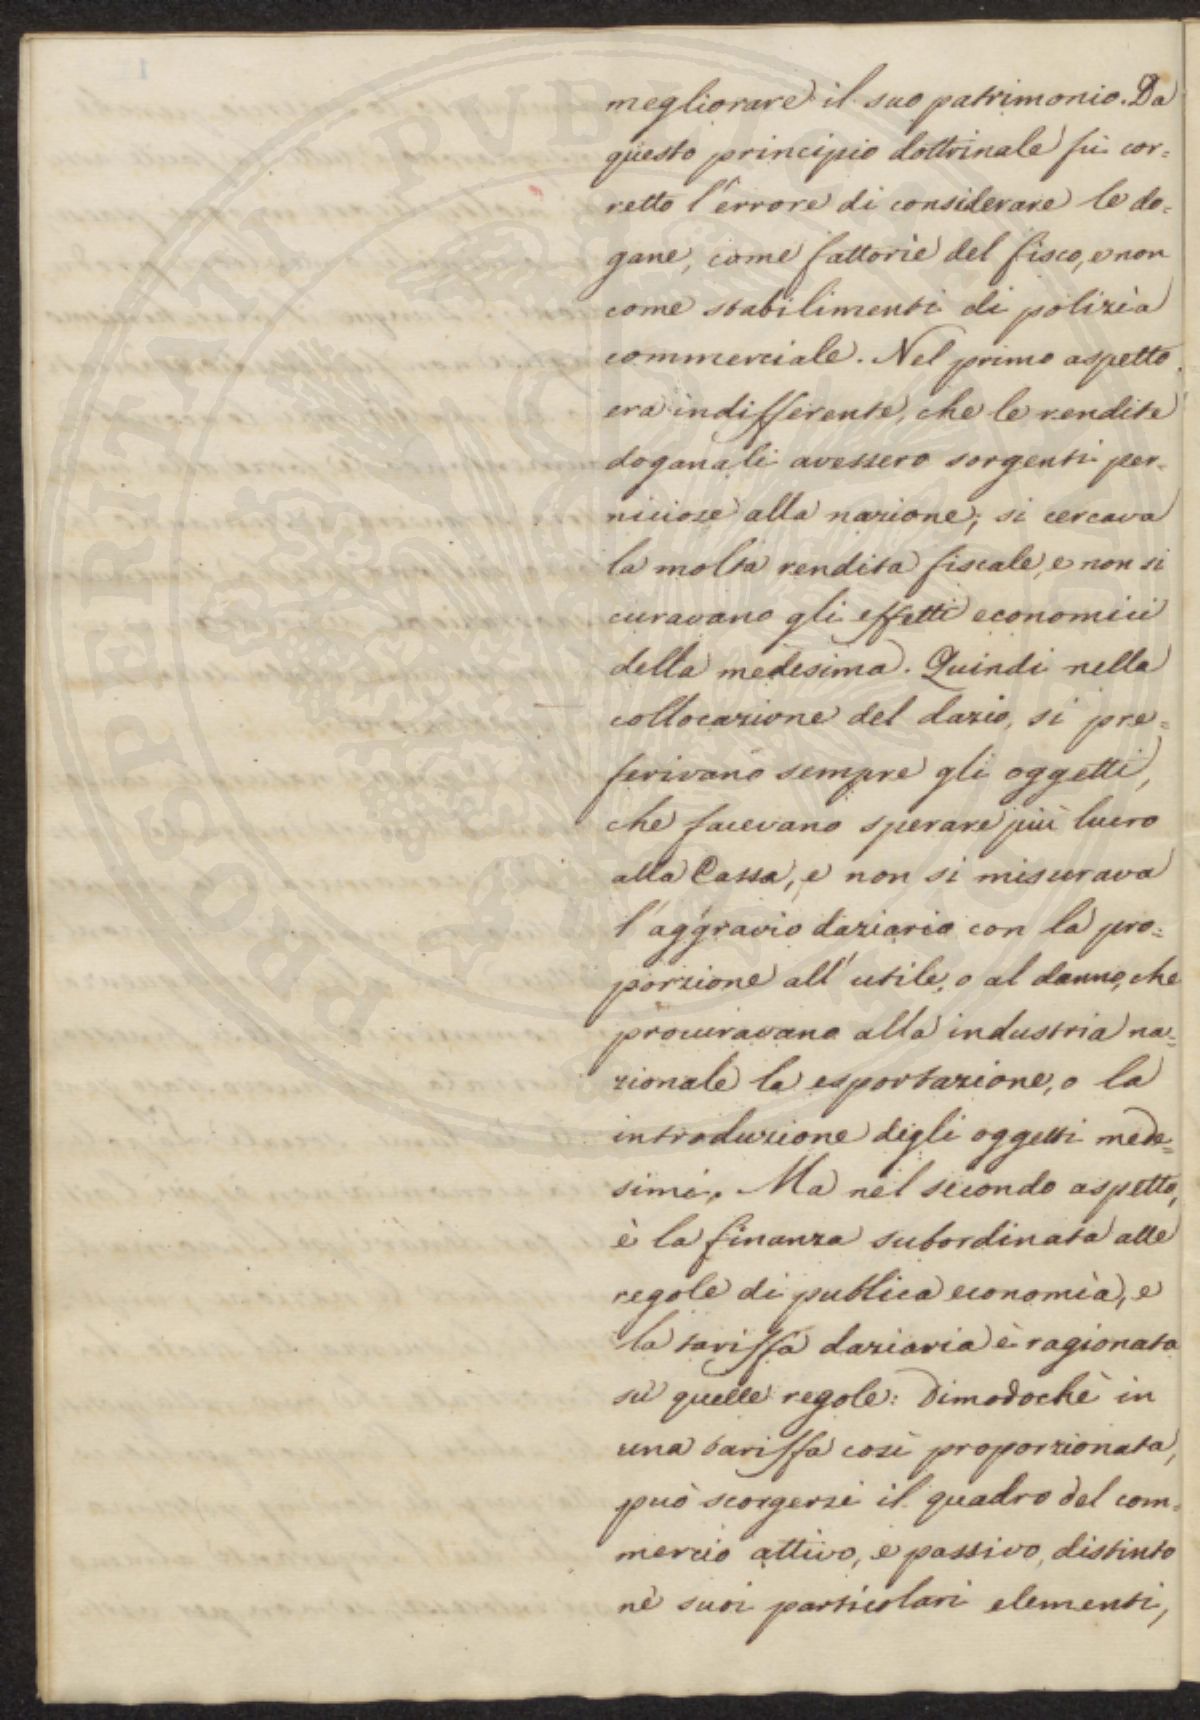 megliorare il suo patrimonio. Da
questo principio dottrinale fù cor=
retto l'errore di considerare le do=
gane, come fattorìe del fisco, e non
come stabilimenti di polizìa
commerciale. Nel primo aspetto
era indifferente, che le rendite
doganali avessero sorgenti per=
niciose alla nazione; si cercava
la molta rendita fiscale, e non si
curavano gli effetti economici
della medesima. Quindi nella
collocazione del dazio, si pre=
ferivano sempre gli oggetti,
che facevano sperare più lucro
alla Cassa, e non si misurava
l'aggravio daziario con la pro=
porzione all'utile, o al danno, che
procuravano alla industria na=
zionale la esportazione, o la
introduzione degli oggetti mede=
simi. Ma nel secondo aspetto,
è la finanza subordinata alle
regole di publica economìa, e
la tariffa daziaria è ragionata
sù quelle regole: Dimodochè in
una tariffa così proporzionata,
può scorgersi il quadro del com=
mercio attivo, e passivo, distinto
nè suoi particolari elementi,
PROSPERITATI PVBLICAE